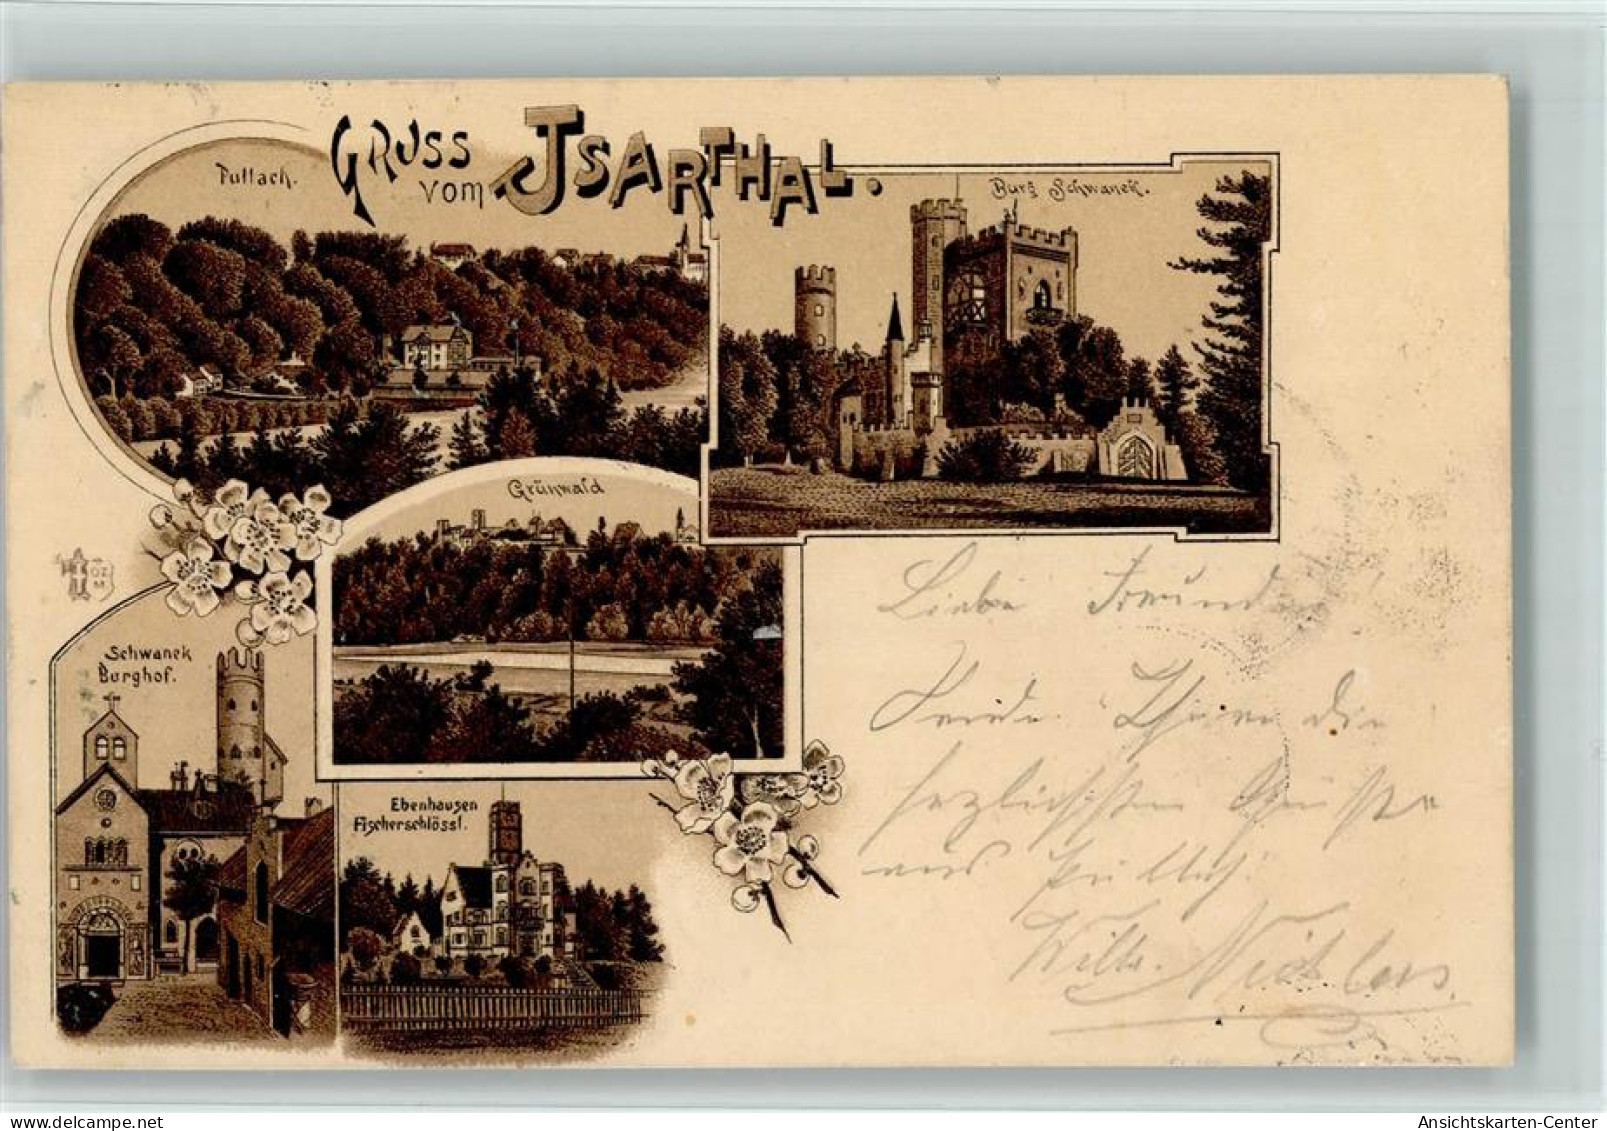 Gruss
vom Isarthal.
Pullach.
Burg Schwaneck.
Grünwald
Schwaneck
Burghof.
Ebenhausen
Fischerschlössl.
OZ.
M.
Liebe Freund
Sende Ihnen die
herzlichsten Grüsse
aus Pullach.
Willy.
Ansichtskarten-Center